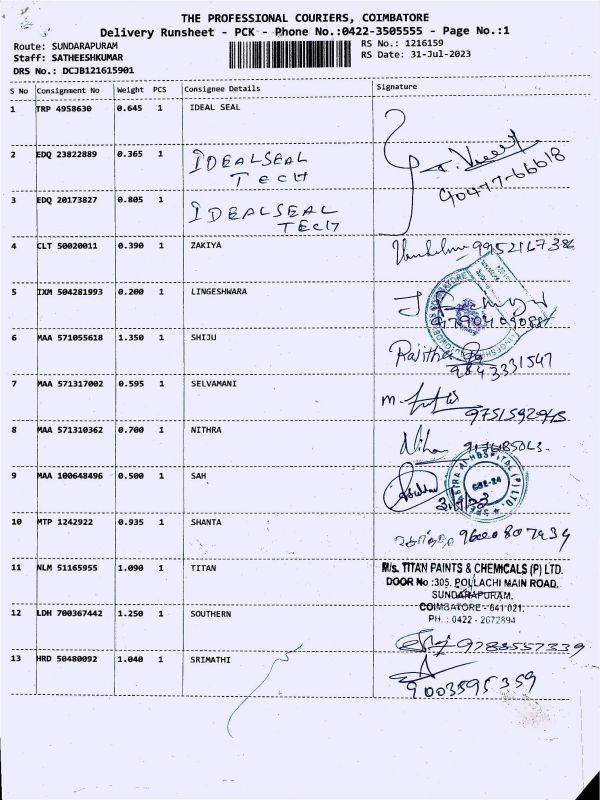 THE PROFESSIONAL COURIERS, COIMBATORE
Delivery Runsheet - PCK - Phone No.:0422-3505555 - Page No.:1
Route: SUNDARAPURAM
RS No.: 1216159
Staff: SATHEESHKUMAR
RS Date: 31-Jul-2023
DRS No.: DCJB121615901
S No Consignment No Weight PCS Consignee Details Signature
1 TRP 4958630 0.645 1 IDEAL SEAL
2 EDQ 23822889 0.365 1 IDEALSEAL
TECH
90477-66618
3 EDQ 20173827 0.805 1 IDEALSEAL
TECH
4 CLT 50020011 0.390 1 ZAKIYA
5 IXM 504281993 0.200 1 LINGESHWARA
6 MAA 571055618 1.350 1 SHIJU Rajitha
9843331547
7 MAA 571317002 0.595 1 SELVAMANI
8 MAA 571310362 0.700 1 NITHRA
9 MAA 100648496 0.500 1 SAH
CBE-24
10 MTP 1242922 0.935 1 SHANTA
11 NLM 51165955 1.090 1 TITAN M/s. TITAN PAINTS & CHEMICALS (P) LTD.
DOOR No :305, POLLACHI MAIN ROAD,
SUNDARAPURAM,
COIMBATORE - 641 021.
PH. : 0422 - 2672894
12 LDH 700367442 1.250 1 SOUTHERN
9788557339
13 HRD 50480092 1.040 1 SRIMATHI
9003595359